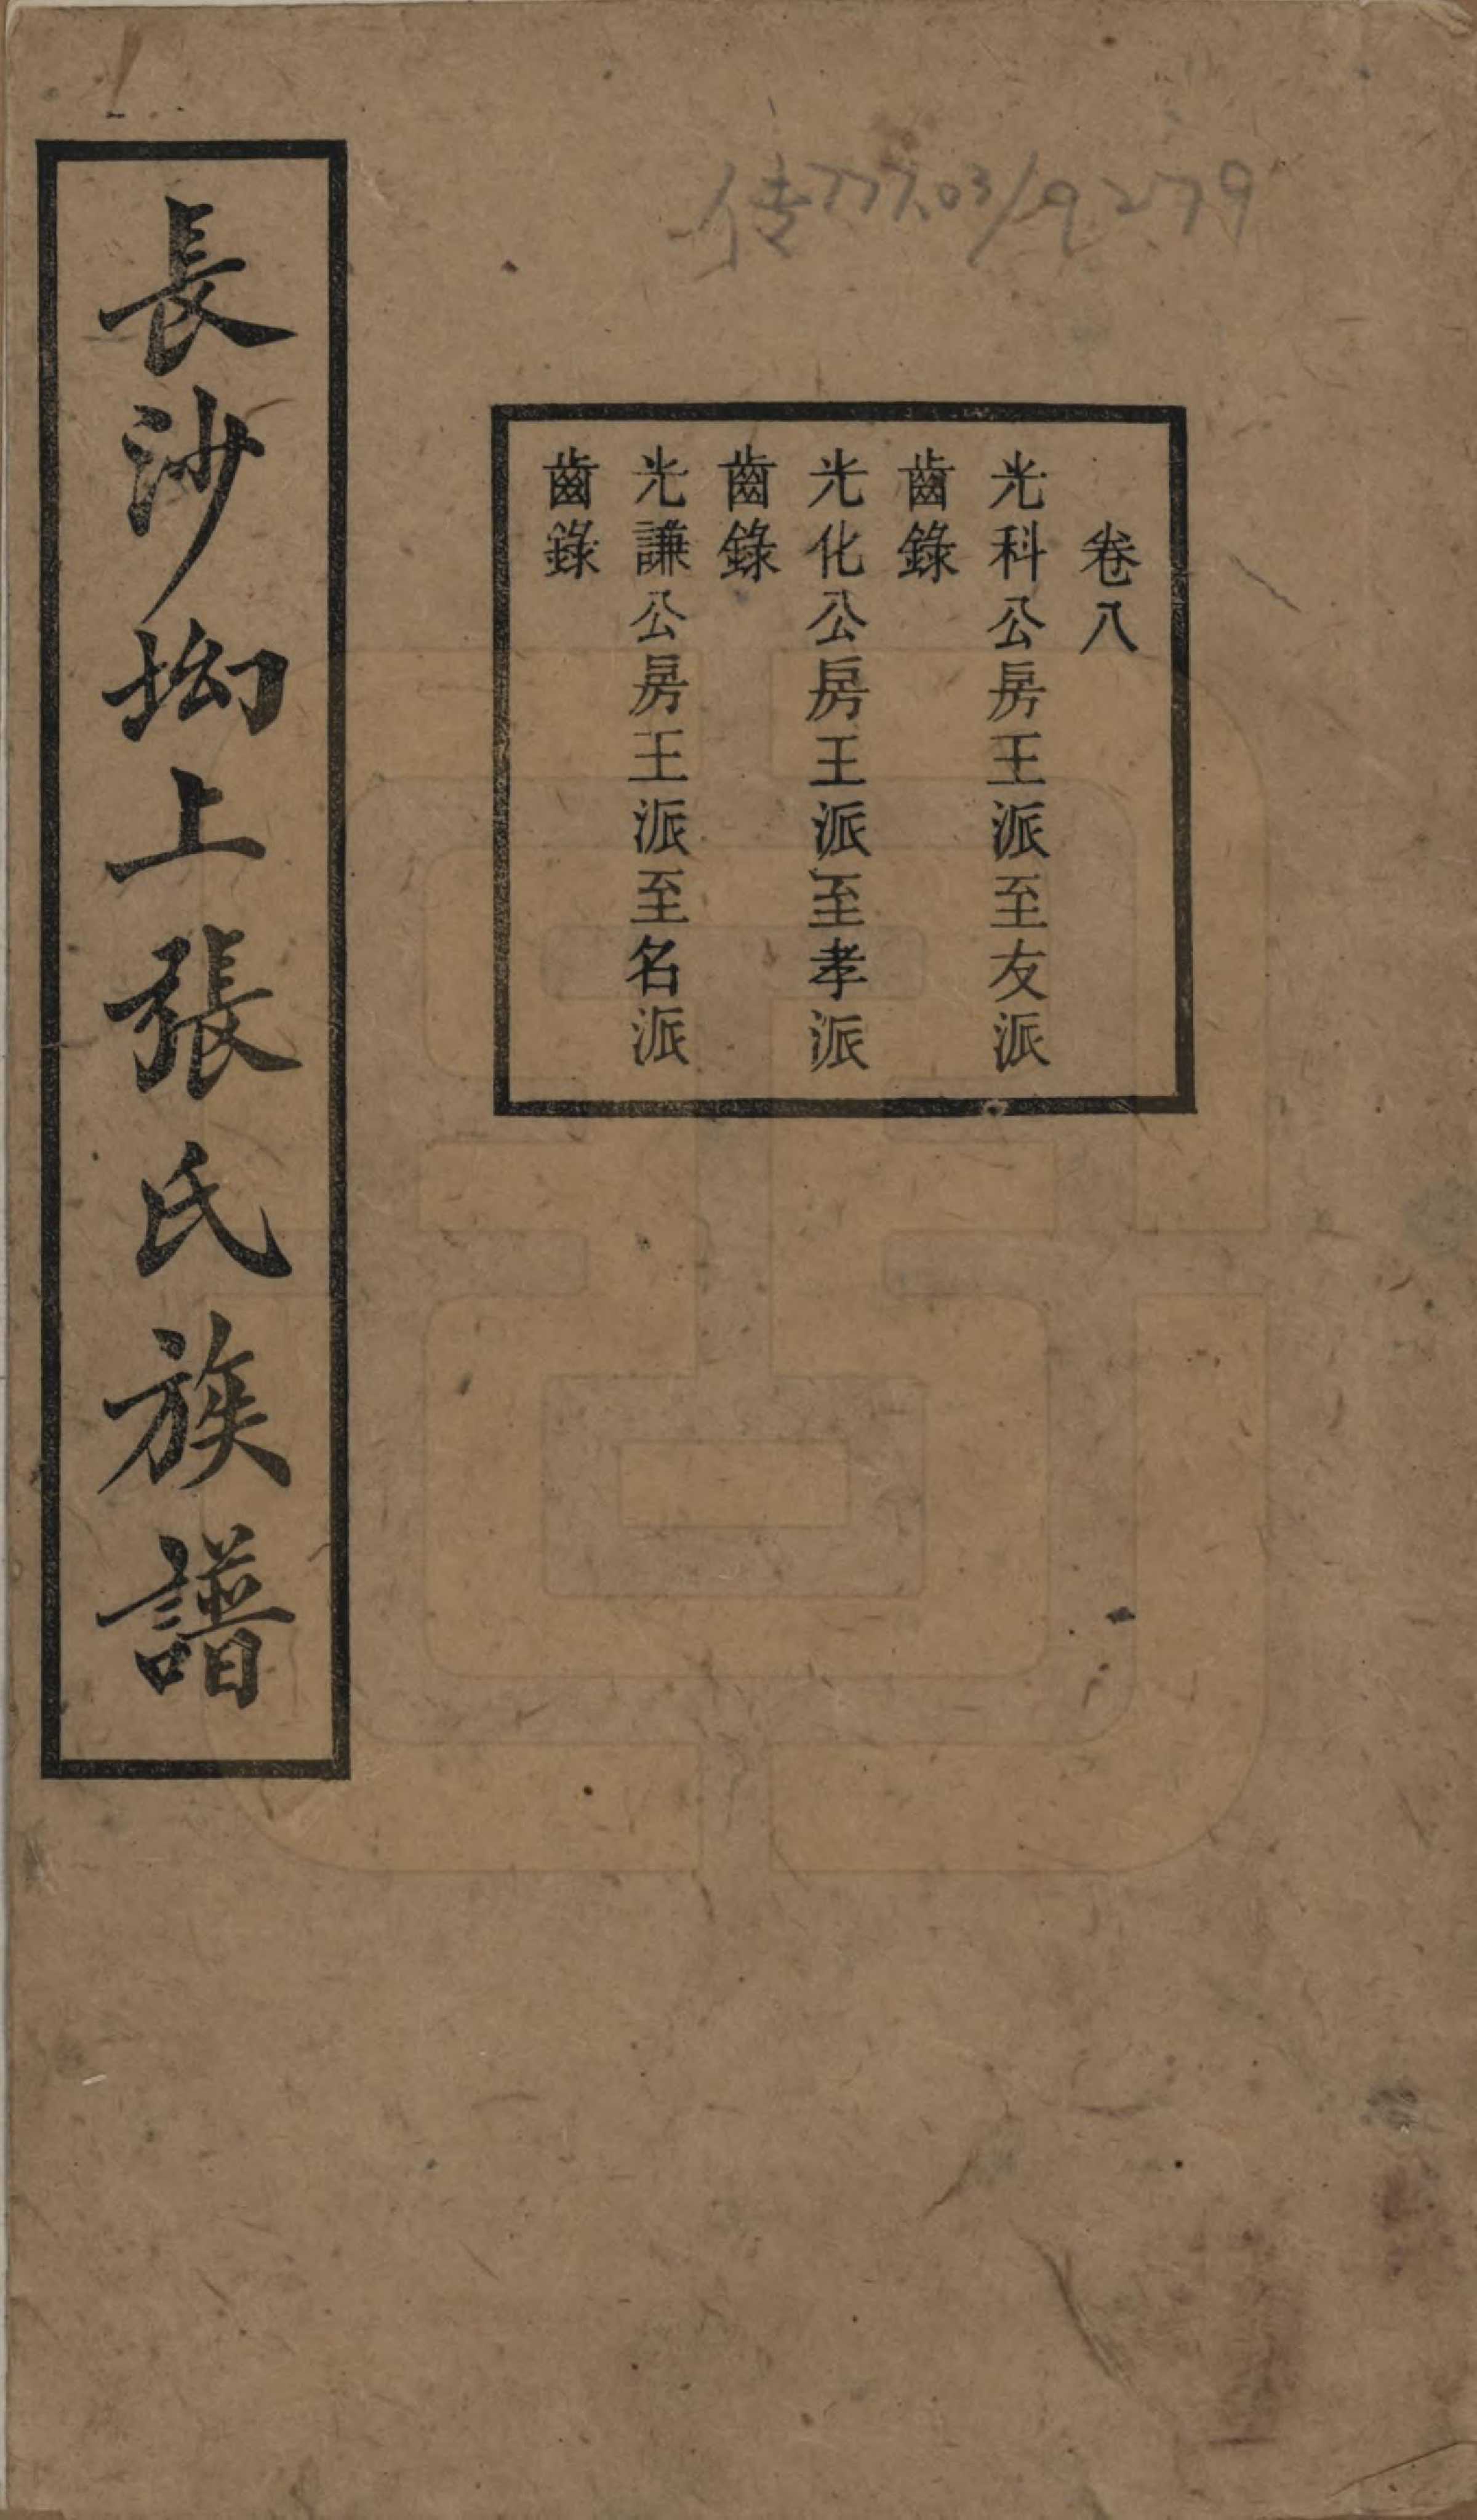 传777.03/9279
卷八
光科公房王派至友派
齒錄
光化公房王派至孝派
齒錄
光謙公房王派至名派
齒錄
長沙坳上張氏族譜